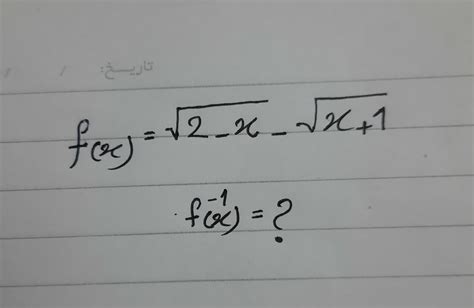 تاریخ: / /
f(x) = √(2-x) - √(x+1)
f⁻¹(x) = ?